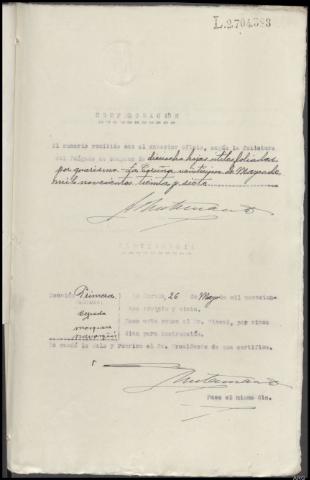 L.2704,383
COMPROBACIÓN
El sumario recibido con el anterior oficio, según la foliatura
del Juzgado se compone de dieciocho hojas útiles foliadas
por guarismo. La Coruña veintiseis de Mayo de
mil novecientos treinta y siete
PROVIDENCIA
Sección Primera La Coruña 26 de Mayo de mil novecien-
tos treinta y siete.
Pase esta causa al Sr. Fiscal, por cinco
días para instrucción.
Lo mandó la Sala y rubrica el Sr. Presidente de que certifico.
Pasa el mismo día.